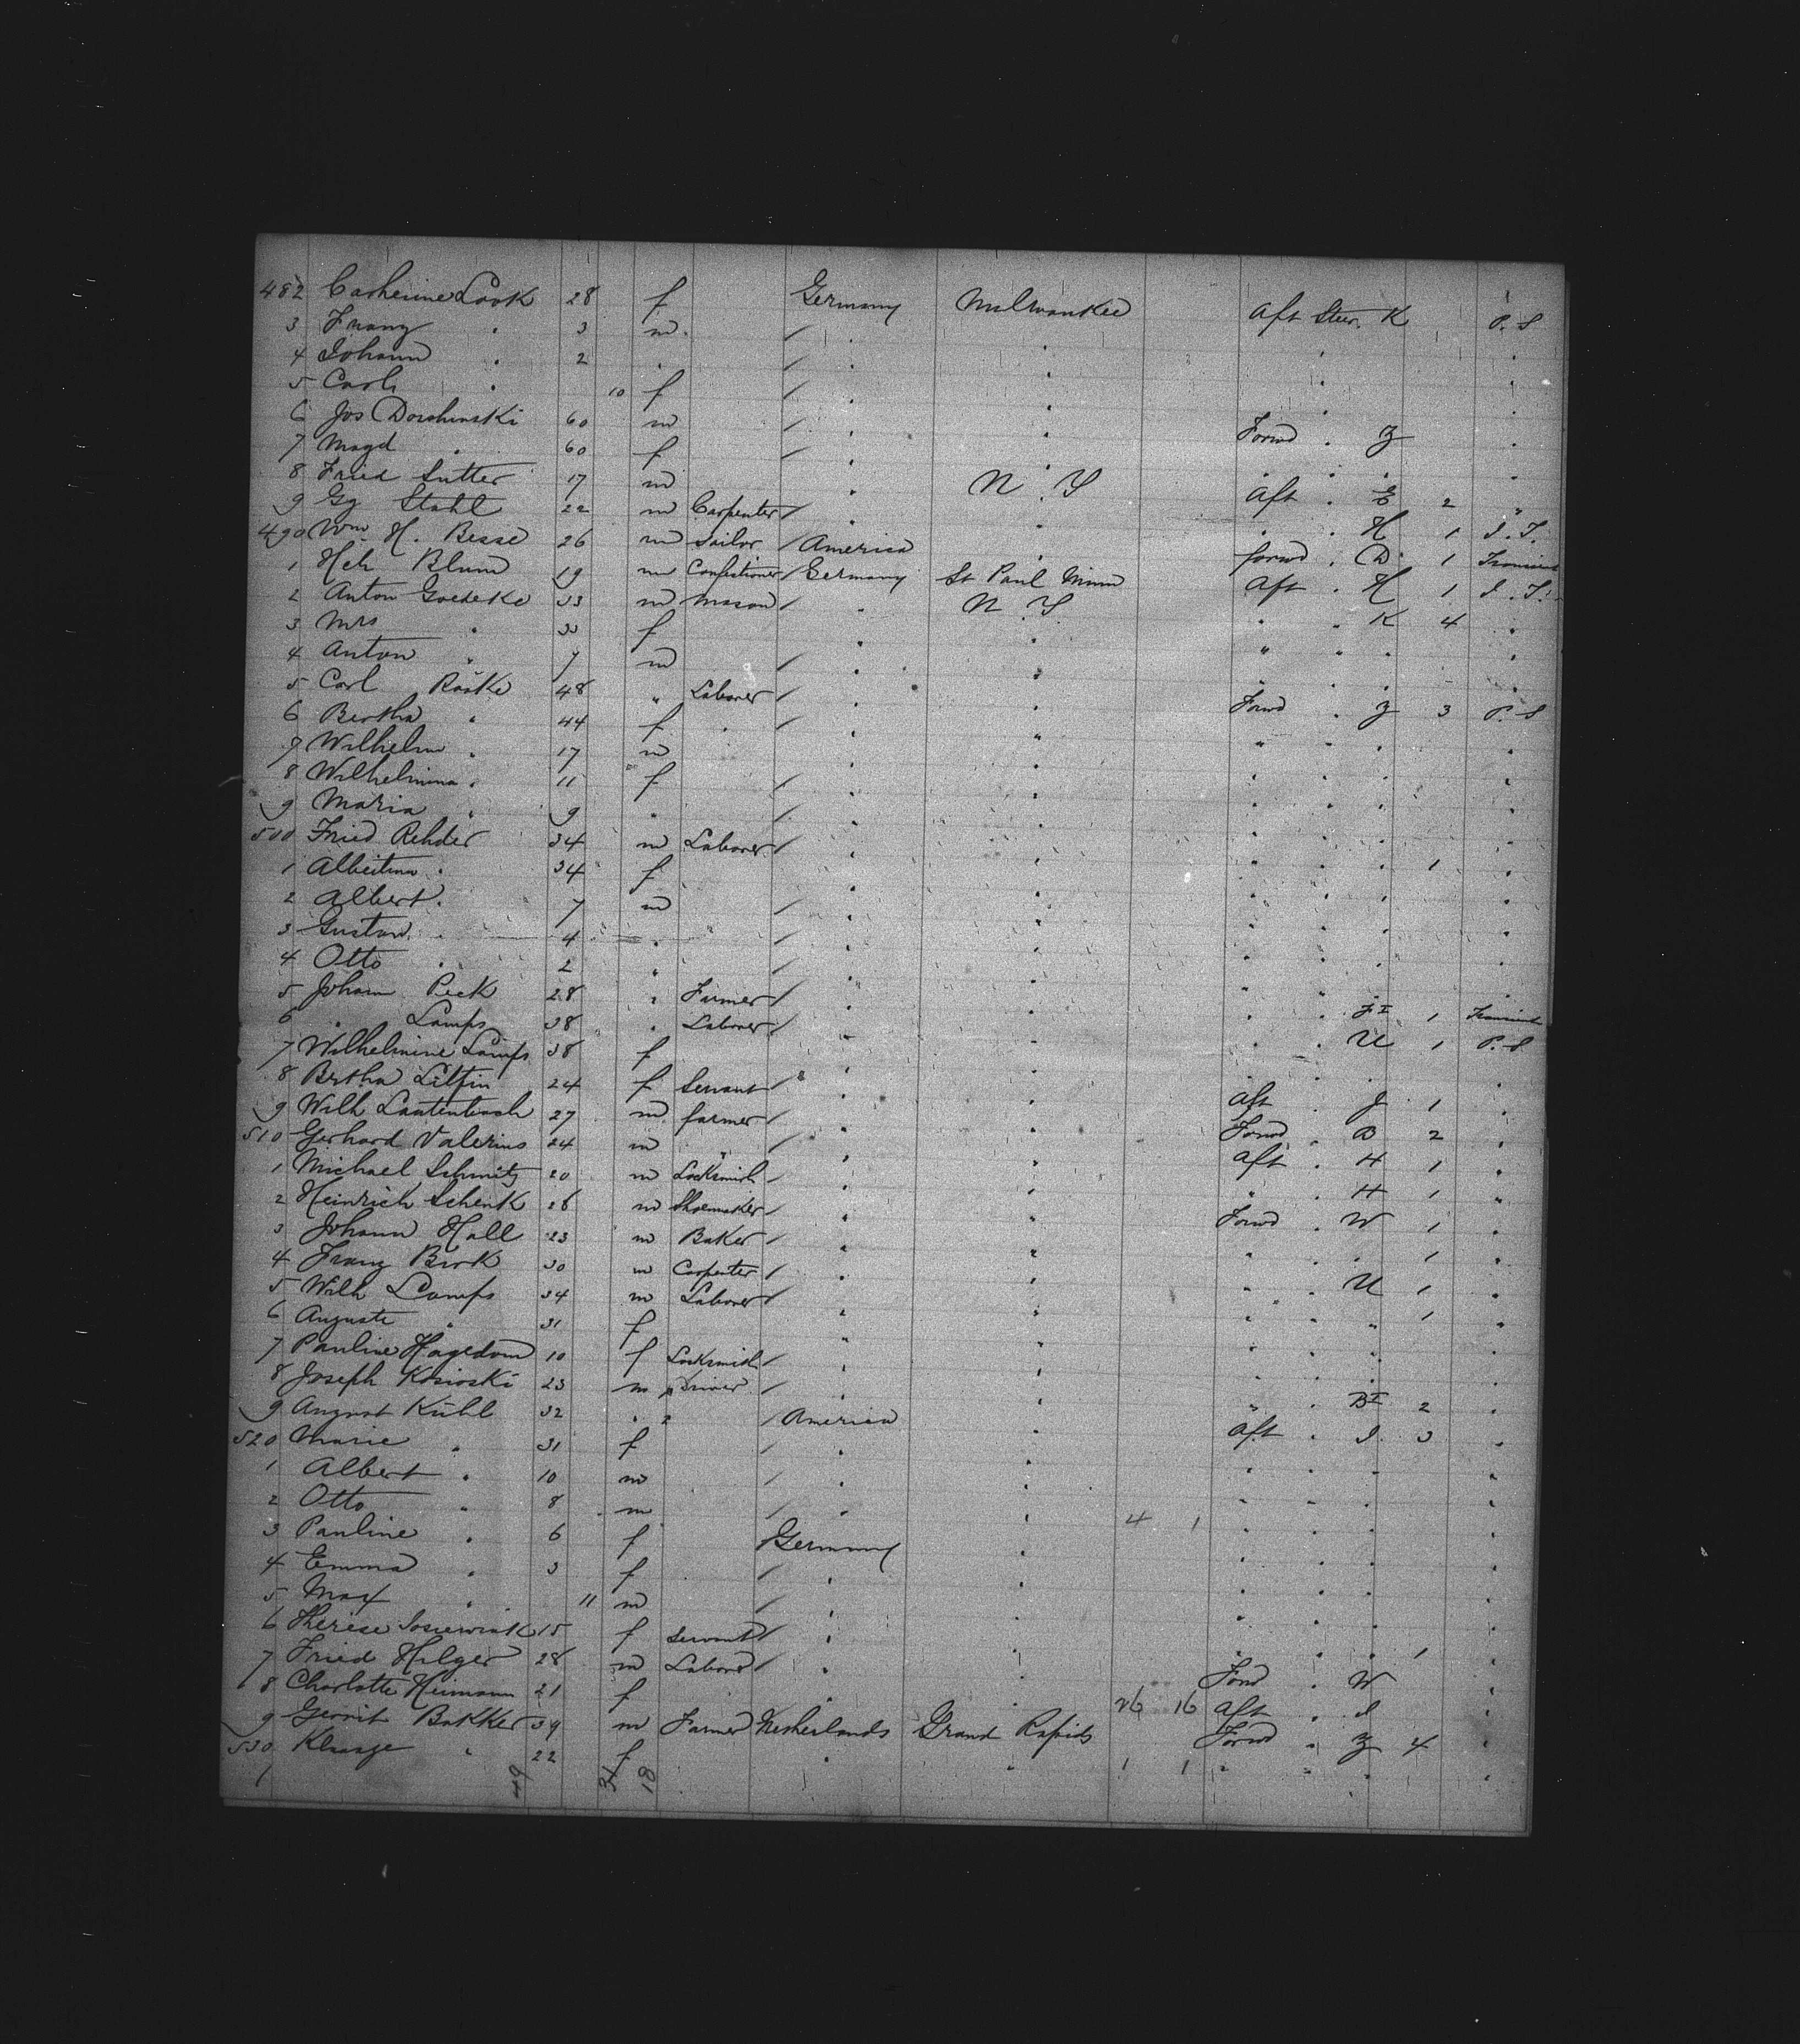 482 Catherine Look 28 f Germany Milwaukee Aft Steer. K P. S
3 Franz " 3 m / " " " "
4 Johann " 2 " / " " " "
5 Carl " 10 f / " " " "
6 Jos Dorshinski 60 m / " " Forwd . Z "
7 Magd " 60 f / " " " " " "
8 Fried Sutter 17 m " N. Y Aft . E 2 "
9 Gg Stahl 22 m Carpenter / " " " " H 1 I. T.
490 Wm H. Besse 26 m Sailor / America " forwd . D 1 Transient
1 Hch Blum 19 m Confectioner / Germany St Paul Minn Aft . H 1 I. T.
2 Anton Goedeke 33 m Mason / " N. Y " " K 4 "
3 Mrs " 33 f " " " " " "
4 Anton " 7 m / " " " " " "
5 Carl Raske 48 " Laborer / " " Forwd . Z 3 P. S
6 Bertha " 44 f " / " " " " " "
7 Wilhelm " 17 m " " " " " "
8 Wilhelmina " 11 f / " " " " " "
9 Maria " 9 " / " " " " " "
500 Fried Rehder 34 m Laborer / " " " " " 1 "
1 Albertina " 34 f " " " " " "
2 Albert " 7 m / " " " " " "
3 Gustav " 4 " / " " " " " "
4 Otto " 2 " / " " " " " "
5 Johann Peck 28 " Farmer / " " " " 1 Transient
6 " Lamps 38 " Laborer / " " " " U 1 P. S
7 Wilhelmine Lamps 38 f " " " " " "
8 Bertha Litfin 24 f Servant / " " Aft . J 1 "
9 Wilh Lautenbach 27 m farmer / " " Forwd . B 2 "
510 Gerhard Valerius 24 m " / " " Aft . H 1 "
1 Michael Schmitz 20 m Locksmith / " " " " H 1 "
2 Heinrich Schenk 26 m Shoemaker / " " Forwd . W 1 "
3 Johann Hall 23 m Baker / " " " " " 1 "
4 Franz Birk 30 m Carpenter / " " " " U 1 "
5 Wilh Lamps 34 m Laborer / " " " " " 1 "
6 Auguste " 31 f " " " " " "
7 Pauline Hagedorn 10 f Locksmith / " " " " " "
8 Joseph Kosioski 23 m Driver / " " " " B I 2 "
9 August Kühl 32 " " / America " Aft . I 3 "
520 Marie " 31 f / " " " " " "
1 Albert " 10 m / " " " " " "
2 Otto " 8 m / " " 4 1 " " " "
3 Pauline " 6 f Germany " " " " "
4 Emma " 3 f / " " " " " "
5 Max " 11 m / " " " " " "
6 Therese 15 f Servant / " " " " " 1 "
7 Fried Hilger 28 m Laborer / " " Forwd . W "
8 Charlotte Heimann 21 f " " 26 16 Aft . I "
9 Gerrit Bakker 39 m Farmer Netherlands Grand Rapids Forwd . Z 4 "
530 Klaasje " 22 f " " 1 1 " " " "
1 49 31 18